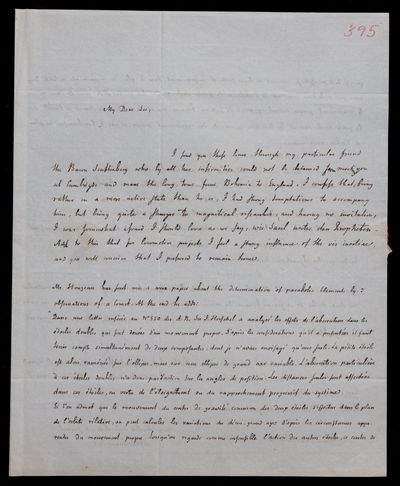 395
My Dear Sir,
I send you these lines through my particular friend
the Baron Senftenberg who by all his infirmities could not be detained from meeting you
at Cambridge and make the long tour from Bohemia to England. I confess that, being
rather in a more active state than he is, I had strong temptations to accompany
him, but being quite a stranger to magnetical researches, and having no invitation,
I was somewhat afraid I should look as we say, wie Saul unter den Propheten.
Add to this that for locomotive projects I feel a strong influence of the vis inertiae,
and you will conceive that I preferred to remain home.
Mr Houzeau has sent me a nice paper about the determination of parabolic elements by 3
observations of a comet. At the end he adds:
Dans une lettre insérée au No 520 des A. N. Sir J. Herschel a analysé les effets de l'aberration dans les
étoiles doubles, qui sont douées d'un mouvement propre. D'après les considérations qu'il a présentées il faut
tenir compte simultanément de deux composantes, dont je n'avais envisagé qu'une seule. La petite étoile
est alors ramenée sur l'ellipse, mais sur une ellipse de grand axe variable. L'aberration particulière
à ces étoiles doubles, n'a donc pas d'action sur les angles de position. Les distances seules sont affectées
dans ces étoiles, en vertu de l'éloignement ou du rapprochement progressif du système.
Si l'on admet que le mouvement du centre de gravité commun des deux étoiles s'effectue dans le plan
de l'orbite relative, on peut calculer les variations du demi-grand axe d'après les circonstances appa-
rentes du mouvement propre, lorsqu'on regarde comme insensible l'action des autres étoiles, ce centre de